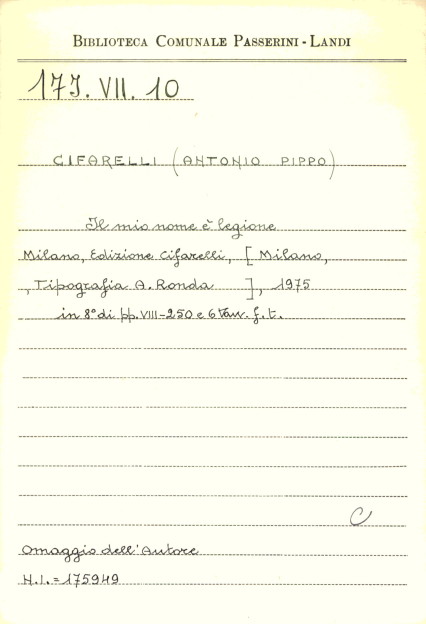 BIBLIOTECA COMUNALE PASSERINI - LANDI
17J. VII. 10
CIFARELLI (ANTONIO PIPPO)
Il mio nome è legione
Milano, Edizione Cifarelli, [ Milano,
, Tipografia A. Ronda ], 1975
in 8° di pp. VIII-250 e 6 tav. f. t.
C
Omaggio dell'Autore
N.I. = 175949